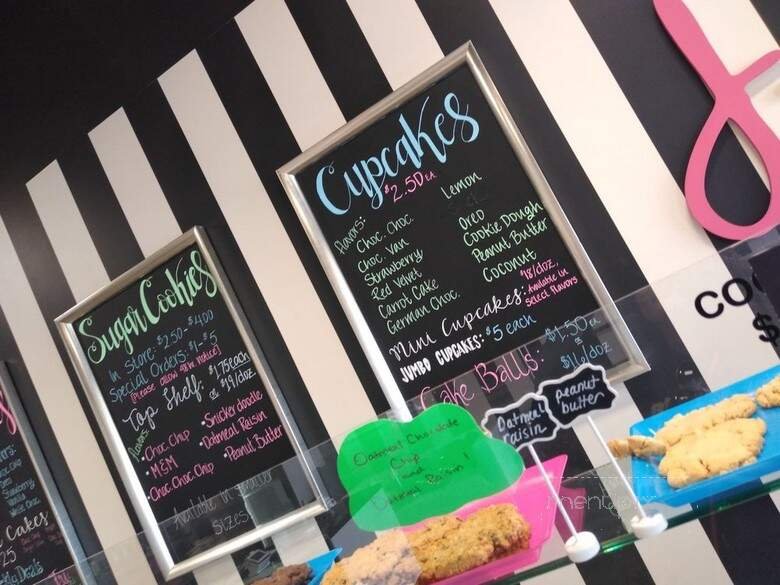 Cupcakes
$2.50 ea
flavors:
Choc. Choc.
Choc. Van
Strawberry
Red Velvet
Carrot Cake
German Choc.
Lemon
Oreo
Cookie Dough
Peanut Butter
Coconut
Mini Cupcakes: $18/doz.
Available in
Select flavors
JUMBO CUPCAKES: $5 each
Cake Balls: $1.50 ea
$16/doz
Sugar Cookies
In Store: $2.50-$4.00
Special Orders: $1-$5
(Please allow 48hr notice)
Top Shelf: $1.75 each
or $19/doz.
flavors:
• Choc Chip
• M&M
• Choc. Choc Chip
• Snickerdoodle
• Oatmeal Raisin
• Peanut Butter
Available in Smaller
Sizes
Cakes
Oatmeal Chocolate
Chip
and
Oatmeal Raisin!
Oatmeal
raisin
peanut
butter
CO
$